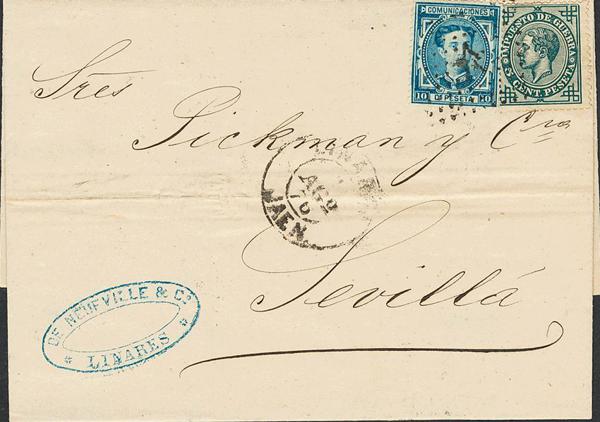 COMUNICACIONES
10 DE PESETA 10
IMPUESTO DE GUERRA
5 CENT. PESETA
Sres
Pickman y Cia
LINARES
AGO
76
JAEN
Sevilla
DE NEUFVILLE & Co
* LINARES *